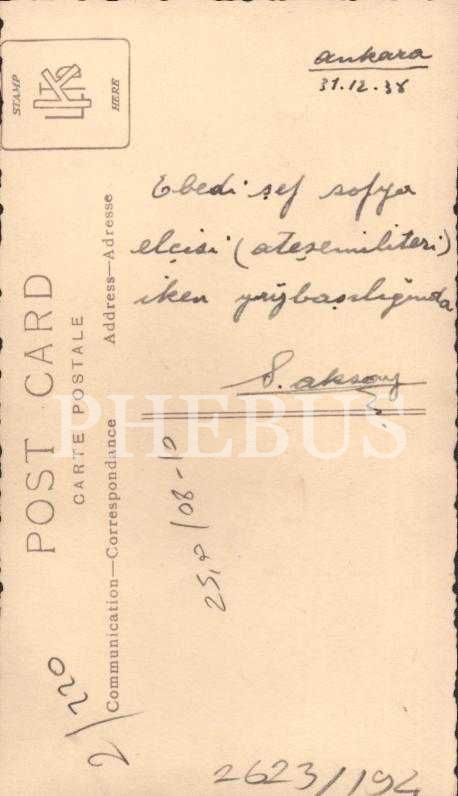 ankara
31.12.38
Ebedi şef sofya
elçisi (ateşemiliteri)
iken
S. aksoy
PHEBUS
STAMP
HERE
POST CARD
CARTE POSTALE
Communication—Correspondance Address—Adresse
2/220
2623/194